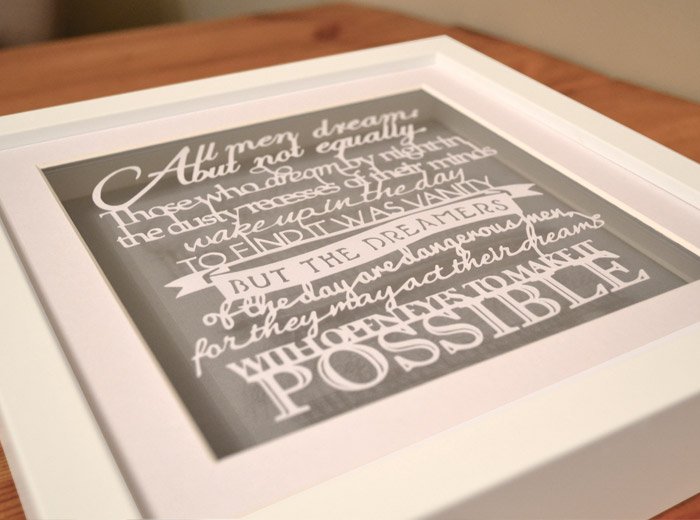 All men dream
but not equally
Those who dream by night in
the dusty recesses of their minds
wake up in the day
TO FIND IT WAS VANITY
BUT THE DREAMERS
of the day are dangerous men,
for they may act their dreams
WITH OPEN EYES TO MAKE IT
POSSIBLE